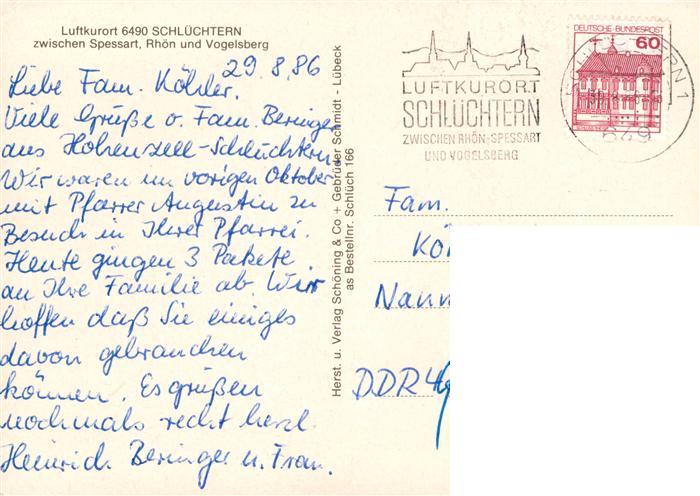 Luftkurort 6490 SCHLÜCHTERN
zwischen Spessart, Rhön und Vogelsberg
29.8.86
Liebe Fam. Köhler.
Viele Grüße v. Fam. Beringer
aus Hohenzell-Schlüchtern
Wir waren im vorigen Oktober
mit Pfarrer Augustin zu
Besuch in Ihrer Pfarrei.
Heute gingen 3 Pakete
an Ihre Familie ab. Wir
hoffen daß Sie einiges
davon gebrauchen
können. Es grüßen
nochmals recht herzl.
Heinrich Beringer u. Frau.
Herst. u. Verlag Schöning & Co + Gebrüder Schmidt - Lübeck
as Bestellnr. Schlüch 166
LUFTKURORT
SCHLÜCHTERN
ZWISCHEN RHÖN-SPESSART
UND VOGELSBERG
DEUTSCHE BUNDESPOST
60
SCHLÜCHTERN 1
649
Fam.
Kö
Naum
DDR